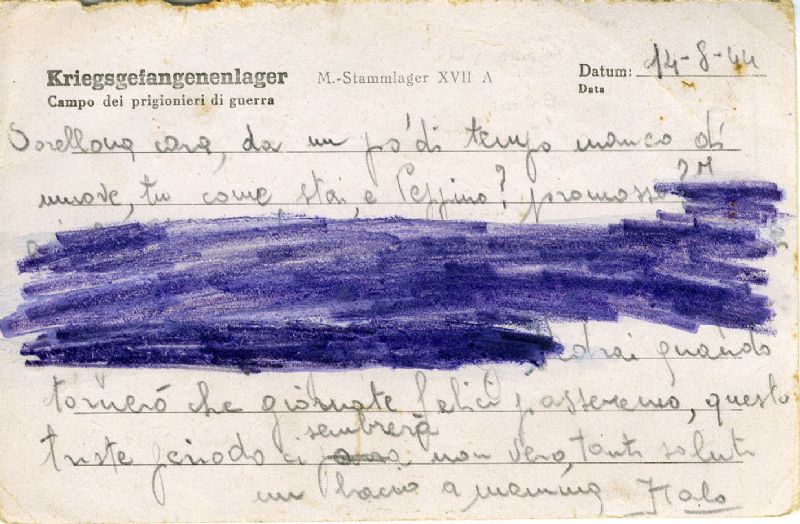 Kriegsgefangenenlager M.-Stammlager XVII A Datum: 14-8-44
Campo dei prigionieri di guerra Data
Sorellona cara, da un pó di tempo manco di
nuove, tu come stai, e Peppino? promosso?
Vedrai quando
torneró che giornate felici passeremo, questo
sembrerà
triste periodo ci non vero, tanti saluti
un bacio a mamma Italo